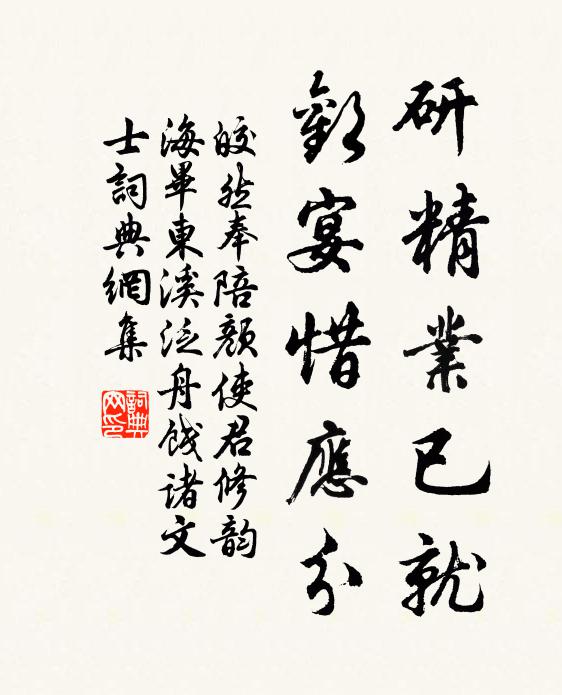 研精業已就
歡宴惜應分
皎然奉陪顏使君修韵
海畢東溪泛舟餞諸文
士詞典網集
詞典
网印